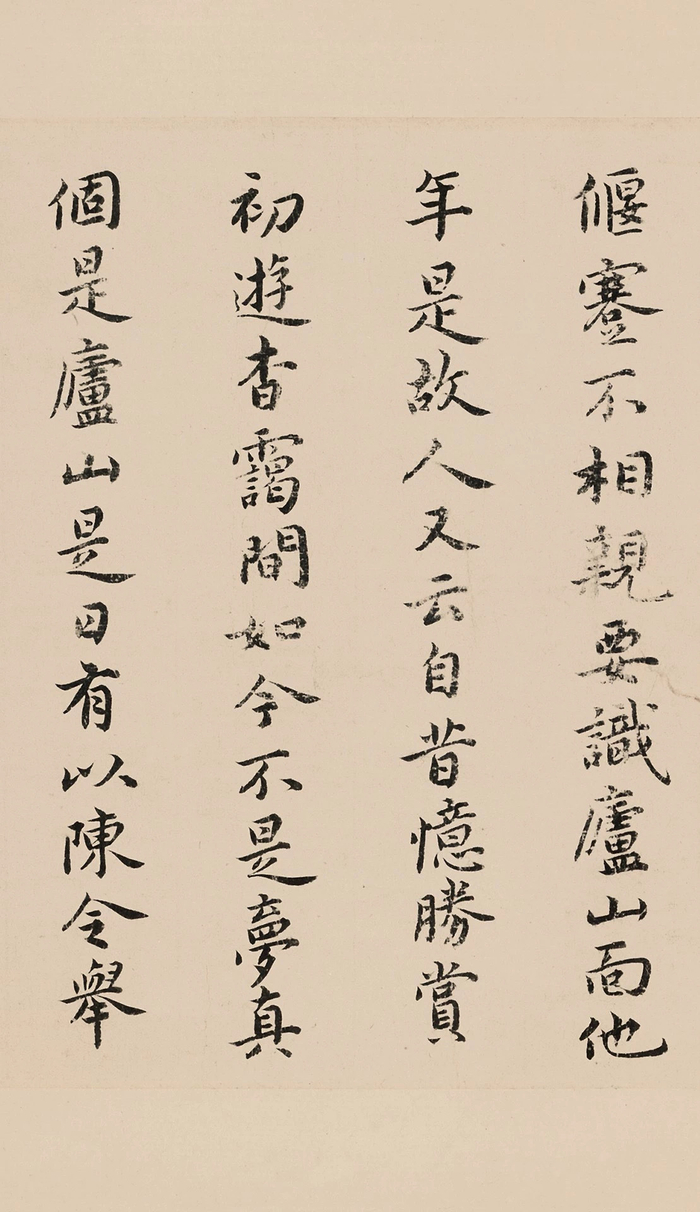 偃蹇不相親要識廬山面他
年是故人又云自昔憶勝賞
初遊杳靄間如今不是夢真
個是廬山是日有以陳令舉